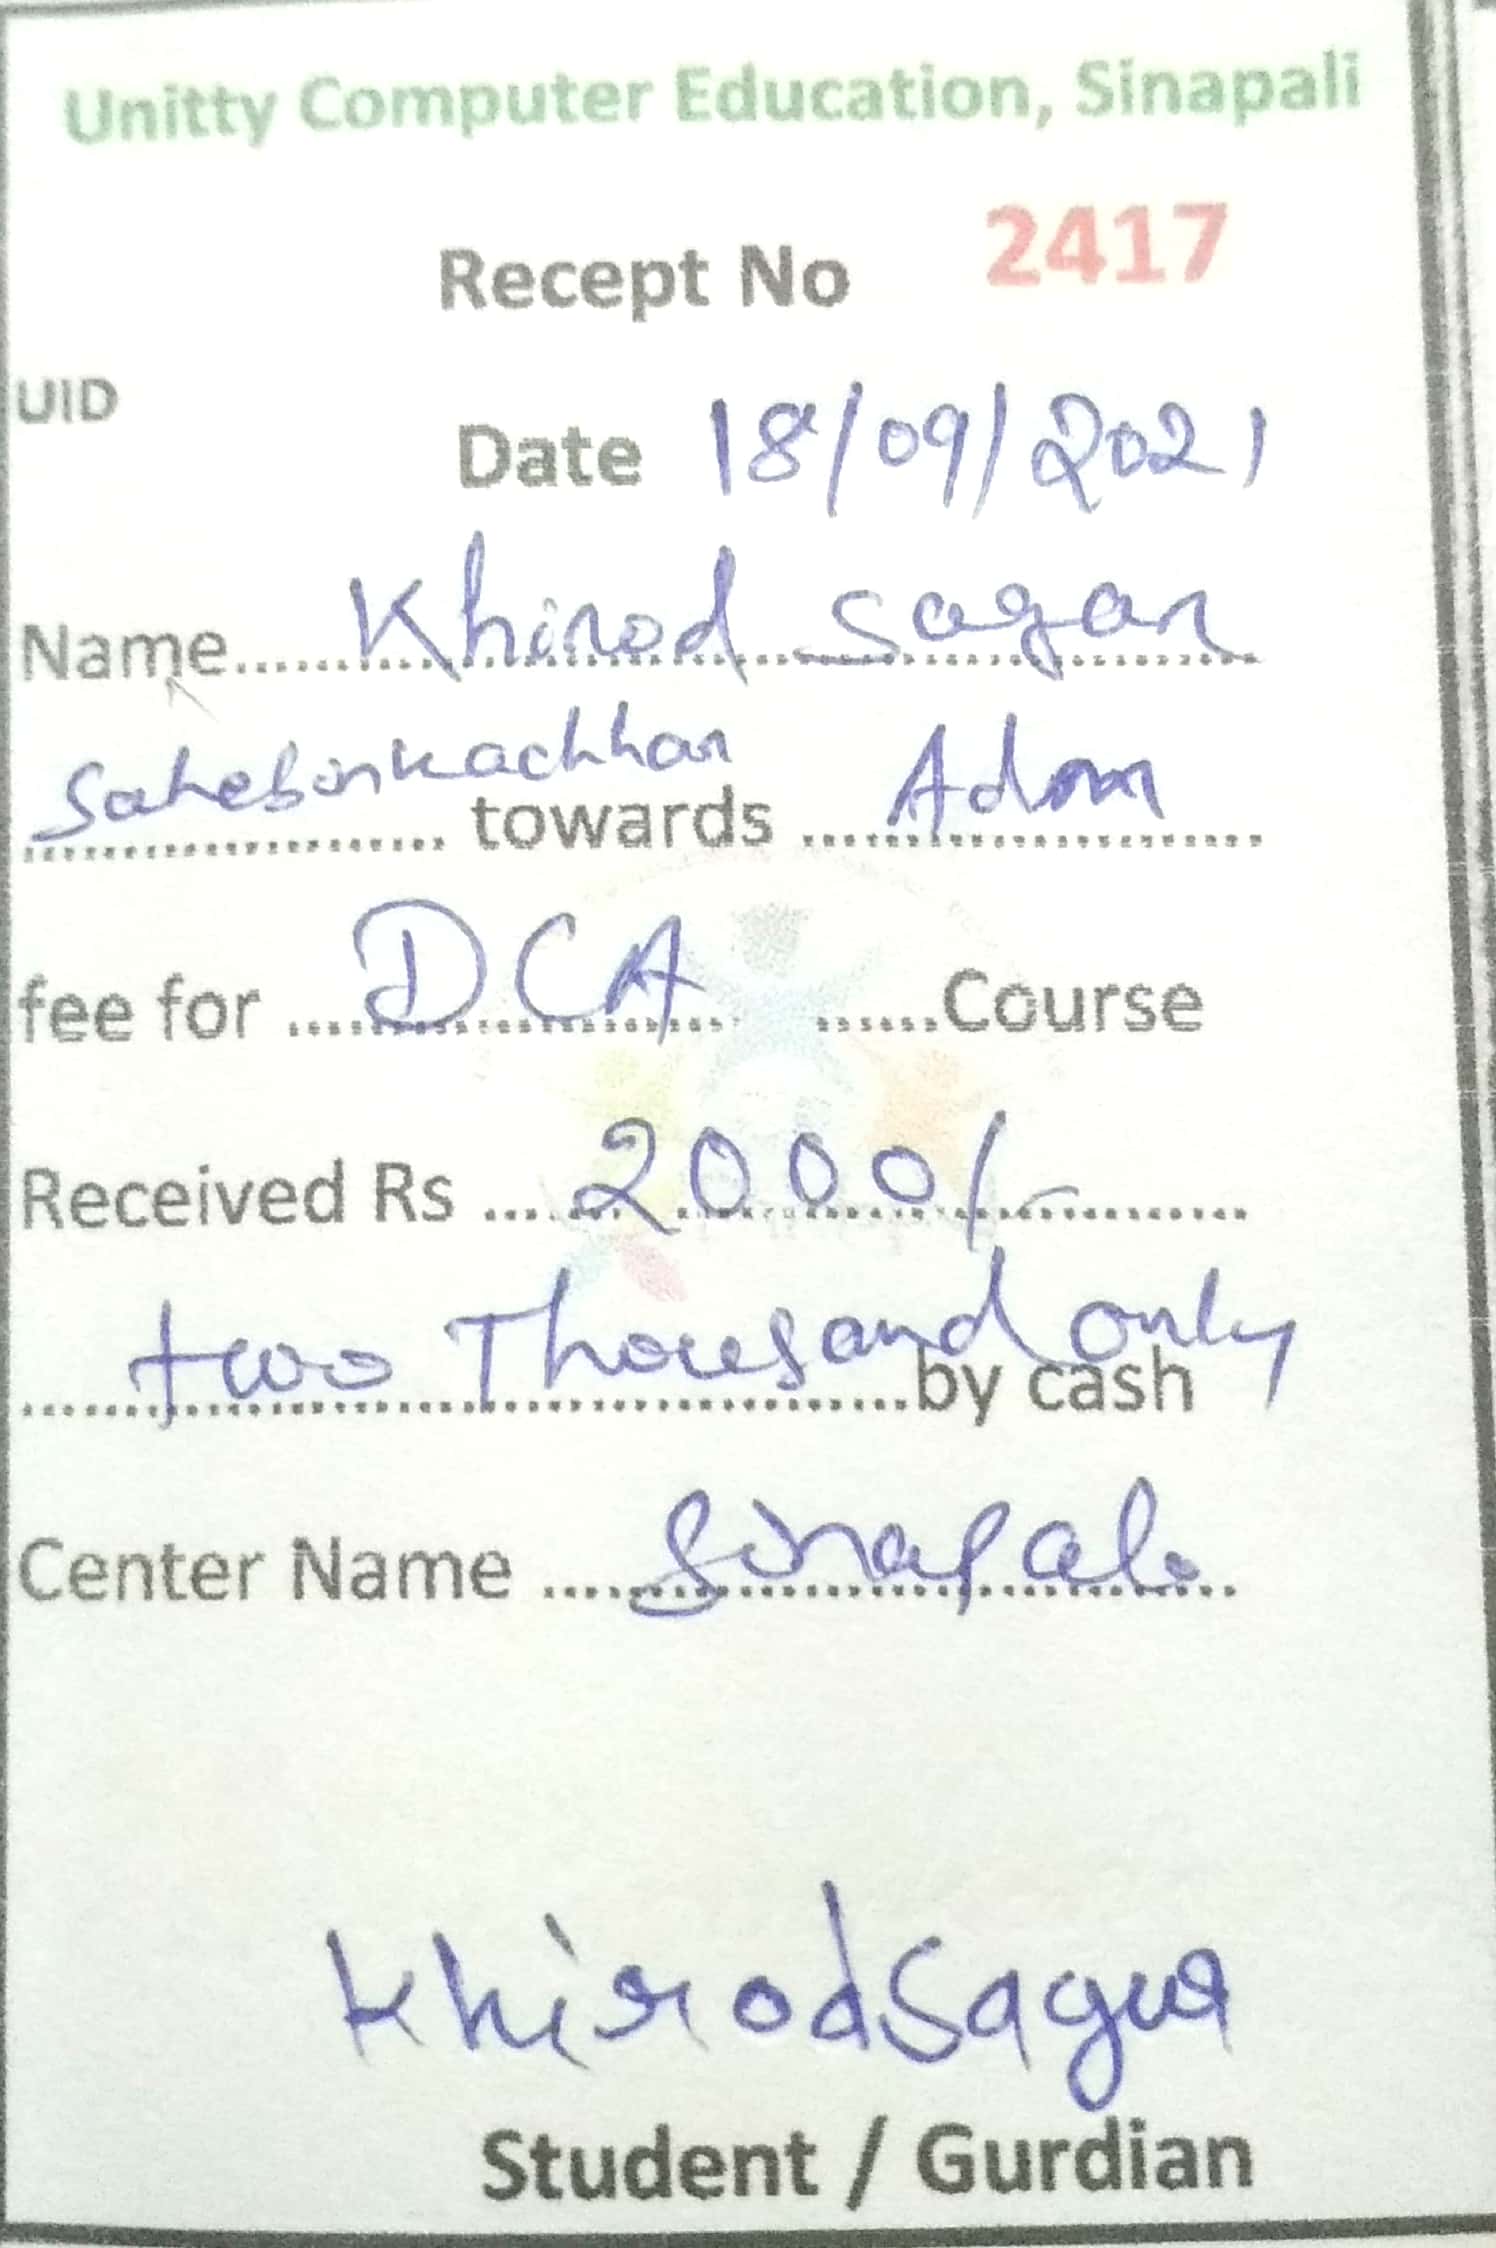 Unitty Computer Education, Sinapali
Recept No 2417
UID
Date 18/09/2021
Name...... Khirod Sagar
Sahebinkachhar
towards ...... Adm
fee for ...... DCA ......Course
Received Rs ...... 2000/-
two Thousand only
by cash
Center Name ...... Sinapali
Khirod Sagar
Student / Gurdian